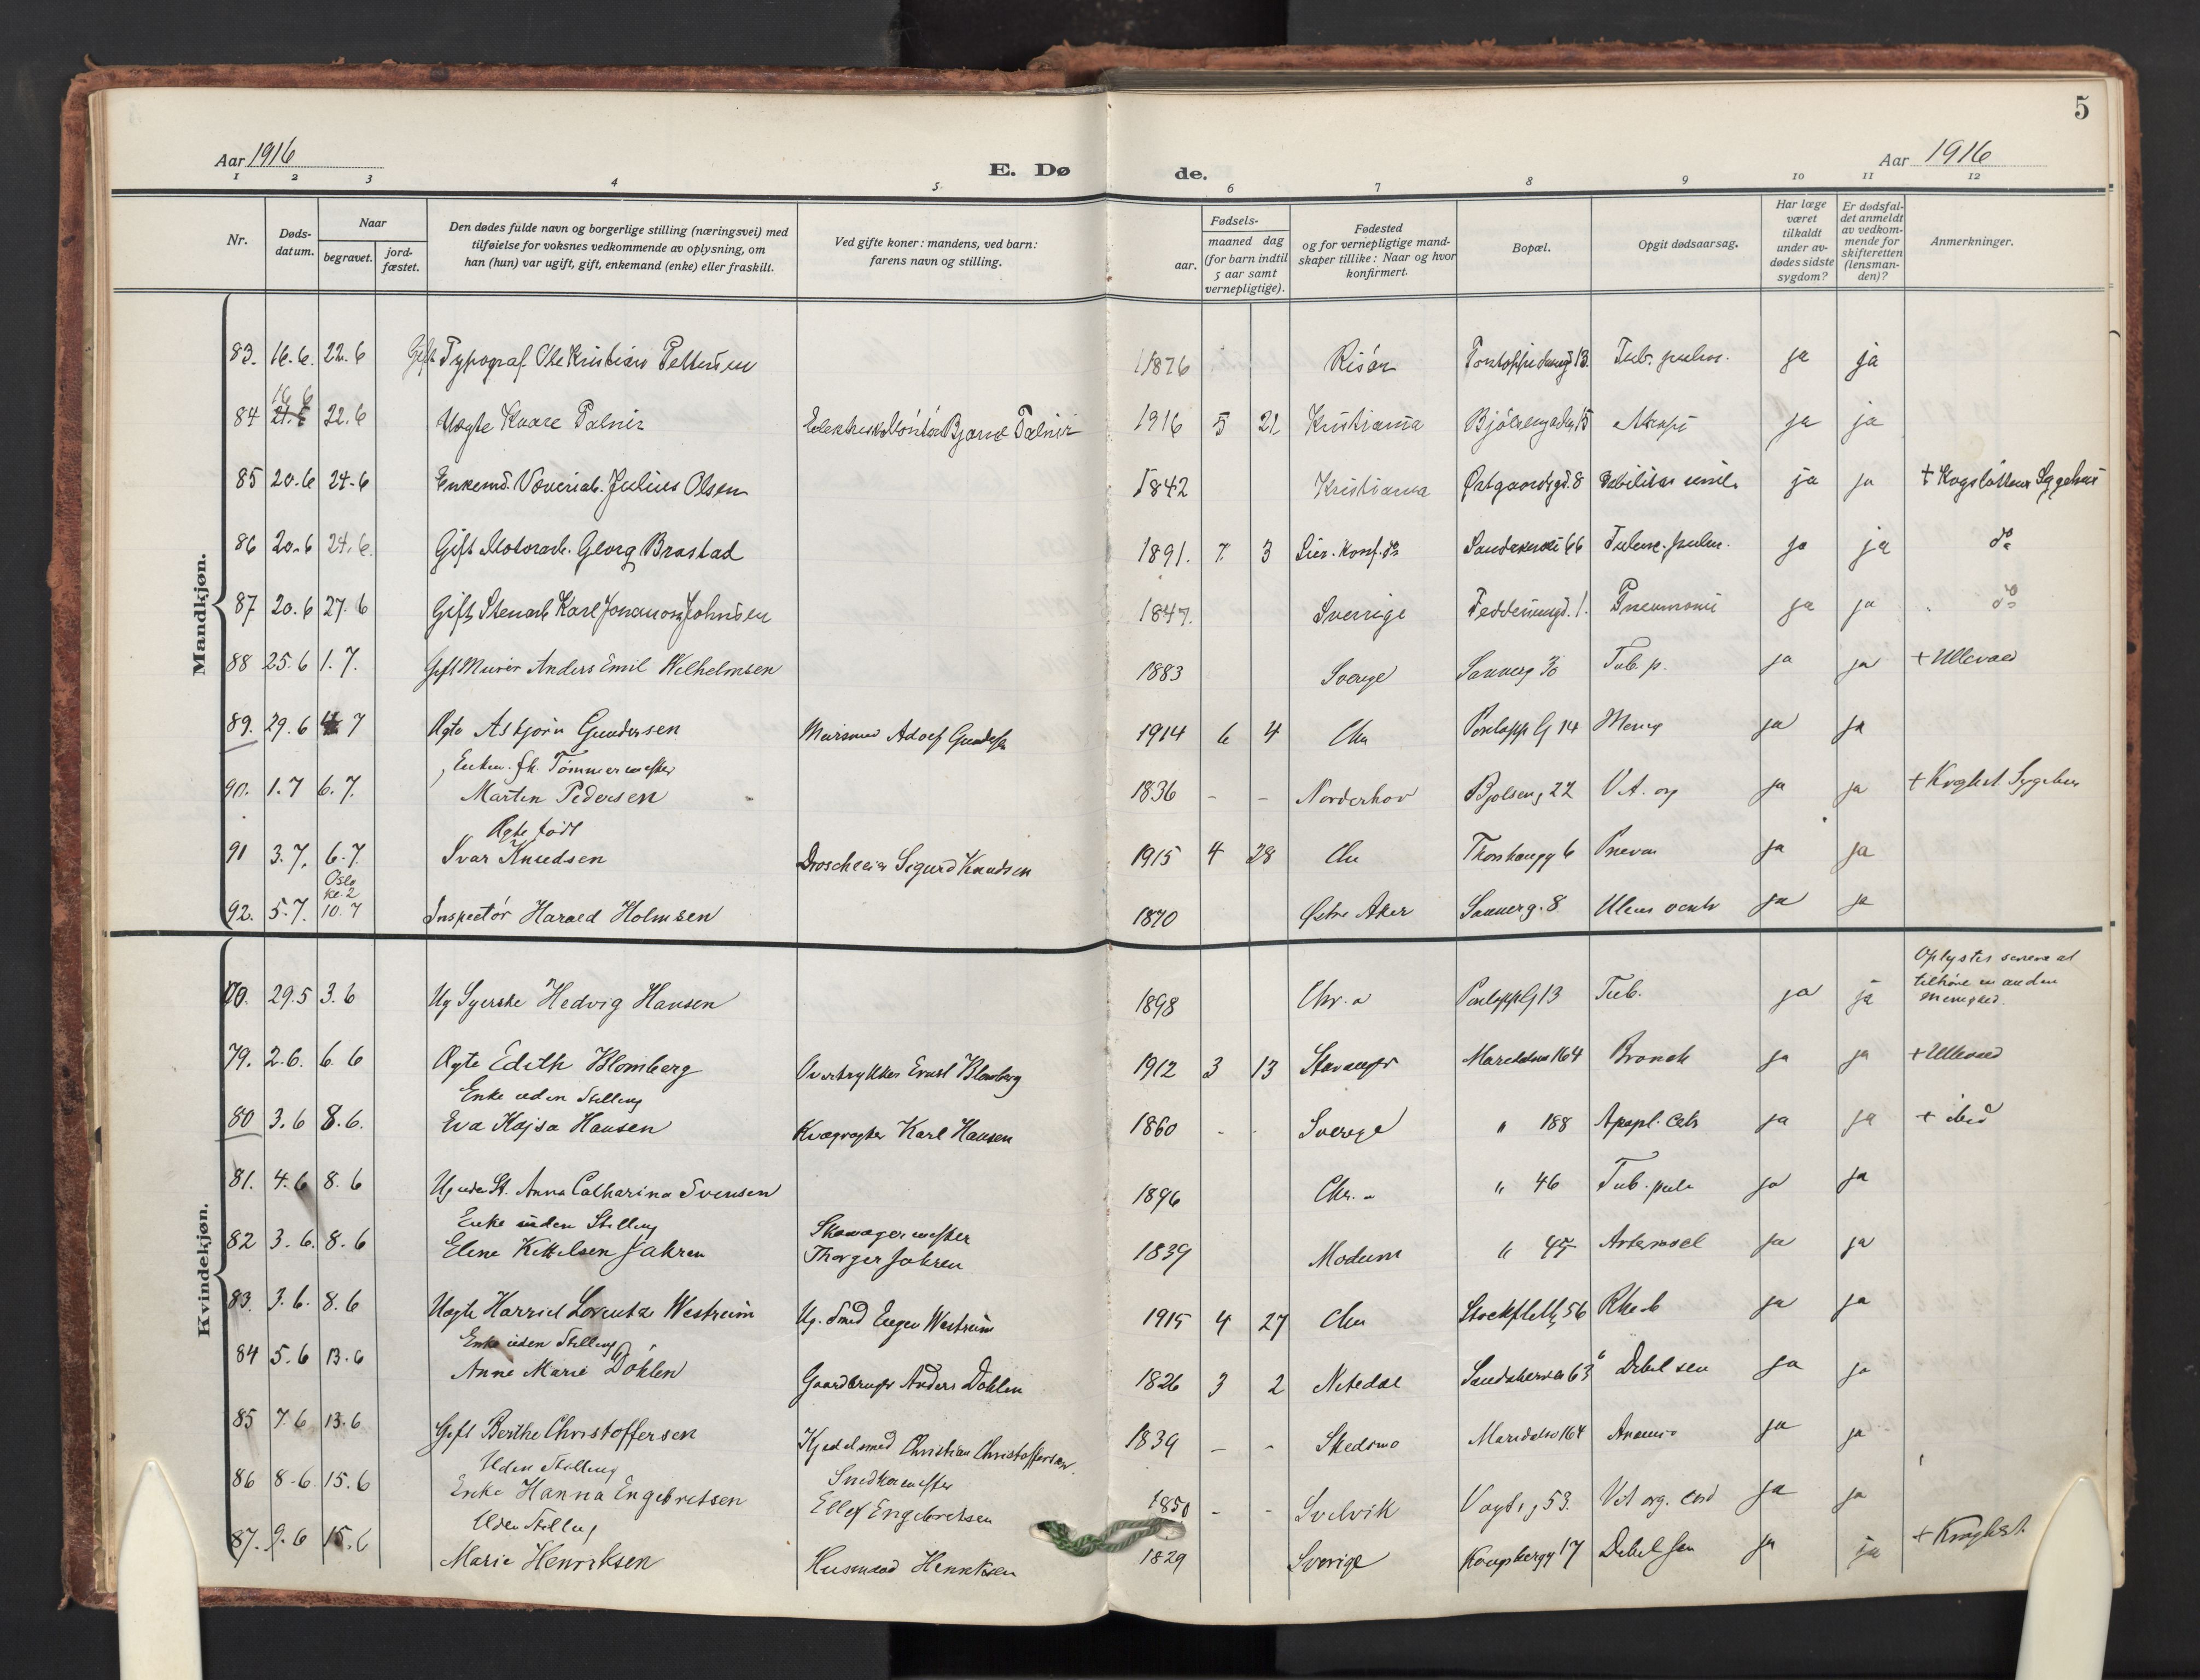 5
Aar 1916
E. Dø
de.
Aar 1916
1 2 3 4 5 6 7 8 9 10 11 12
Nr.
Døds-
datum.
Naar
begravet.
jord-
fæstet.
Den dødes fulde navn og borgerlige stilling (næringsvei) med
tilføielse for voksnes vedkommende av oplysning, om
han (hun) var ugift, gift, enkemand (enke) eller fraskilt.
Ved gifte koner: mandens, ved barn:
farens navn og stilling.
Fødsels-
aar.
maaned dag
(for barn indtil
5 aar samt
vernepligtige).
Fødested
og for vernepligtige mand-
skaper tillike: Naar og hvor
konfirmert.
Bopæl.
Opgit dødsaarsag.
Har læge
været
tilkaldt
under av-
dødes sidste
sygdom?
Er dødsfal-
det anmeldt
av vedkom-
mende for
skifteretten
(lensman-
den)?
Anmerkninger.
Mandkjøn.
83. 16.6. 22.6 Gift Typograf Ole Kristian Pettersen 1876 Risør 13. Tub. pulm. ja ja
16 6
84 21.6 22.6 Uægte Kaare Palnir Bjarne Palnir 1916 5 21 Kristiania Bjølsengaden 15 ja ja
85 20.6 24.6 Enkemd. Væveriarb. Julius Olsen 1842 Kristiania Østgaardsgd. 8 Debilitas senil. ja ja + Krogstøttens Sygehus
86 20.6 24.6. Gift Motorarb. Georg Brastad 1891. 7. 3 Lier. Konf. do Sandakerve 66 Tuberc. pulm. ja ja do
87 20.6 27.6 Gift Stenarb Karl Johnsen 1847. Sverrige 1. Pneumoni ja ja do
88 25.6 1.7. Gift Murer Anders Emil Wilhelmsen 1883 Sverige Sannerg 30 Tub. p. ja ja + Ullevaal
89. 29.6 4 7 Ægte Asbjørn Gundersen Adolf Gundersen 1914 6 4 Chra Pontopp G 14 Mening ja ja
Enkem. fh. Tømmermester
90. 1.7 6.7. Martin Pedersen 1836 - - Norderhov Bjølseng 22 V.t. org ja ja + Krogst. Sygehus
Ægte født
91 3.7. 6.7. Ivar Knudsen Droscheeier Sigurd Knudsen 1915 4 28 Chr Thorshaugg 6 Pneum ja ja
Oslo
kl. 2
92. 5.7. 10.7 Inspectør Harald Holmsen 1870 Østre Aker Sannerg. 8 Ulcus ventr ja ja
Kvindekjøn.
Oplystes senere at
tilhøre en anden
Menighed.
29.5 3.6 Ug Syerske Hedvig Hansen 1898 Chr. a Pontoppg 13 Tub. ja ja
79. 2.6. 6.6 Ægte Edith Blomberg Overtrykker Ernst Blomberg 1912 3 13 Stavanger Maridalsv 164 Bronch ja ja + Ullevaal
Enke uden Stilling
80 3.6 8.6. Eva Kajsa Hansen Kvægrøgter Karl Hansen 1860 - - Sverige " 188 Apopl. Cebr ja ja + ibid
81. 4.6 8.6 Ug uden St. Anna Catharina Svensen 1896 Chr. a " 46 Tub. pulm ja ja
Enke uden Stilling Skomagermester
82 3.6. 8.6 Elene Kittelsen Jahren Thorger Jahren 1839 Modum " 45 Arterioscl ja ja
83. 3.6. 8.6 Uægte Harriet Lorentze Westreim Ug. Smed Eugen Westreim 1915 4 27 Chr Stockfletsg 56 ja ja
Enke uden Stilling
84 5.6 13.6 Anne Marie Døhlen Gaardbruger Anders Døhlen 1826 3 2 Nitedal Sandakerv 63 b Debil sen ja ja
85 7.6 13.6 Gift Berthe Christoffersen Kjedelsmed Christian Christoffersen. 1839 - - Skedsmo Maridalsv 164 Anæmia ja ja
Uden Stilling Snedkermester
86 8.6 15.6 Enke Hanna Engebretsen Ellef Engebretsen 1850 - - Svelvik Vogtsg 53. Vit org. cord ja ja
Uden Stilling
87. 9.6 15.6 Marie Henriksen Husmand Henriksen 1829 Sverige 17 Debil sen ja ja + Krogst.